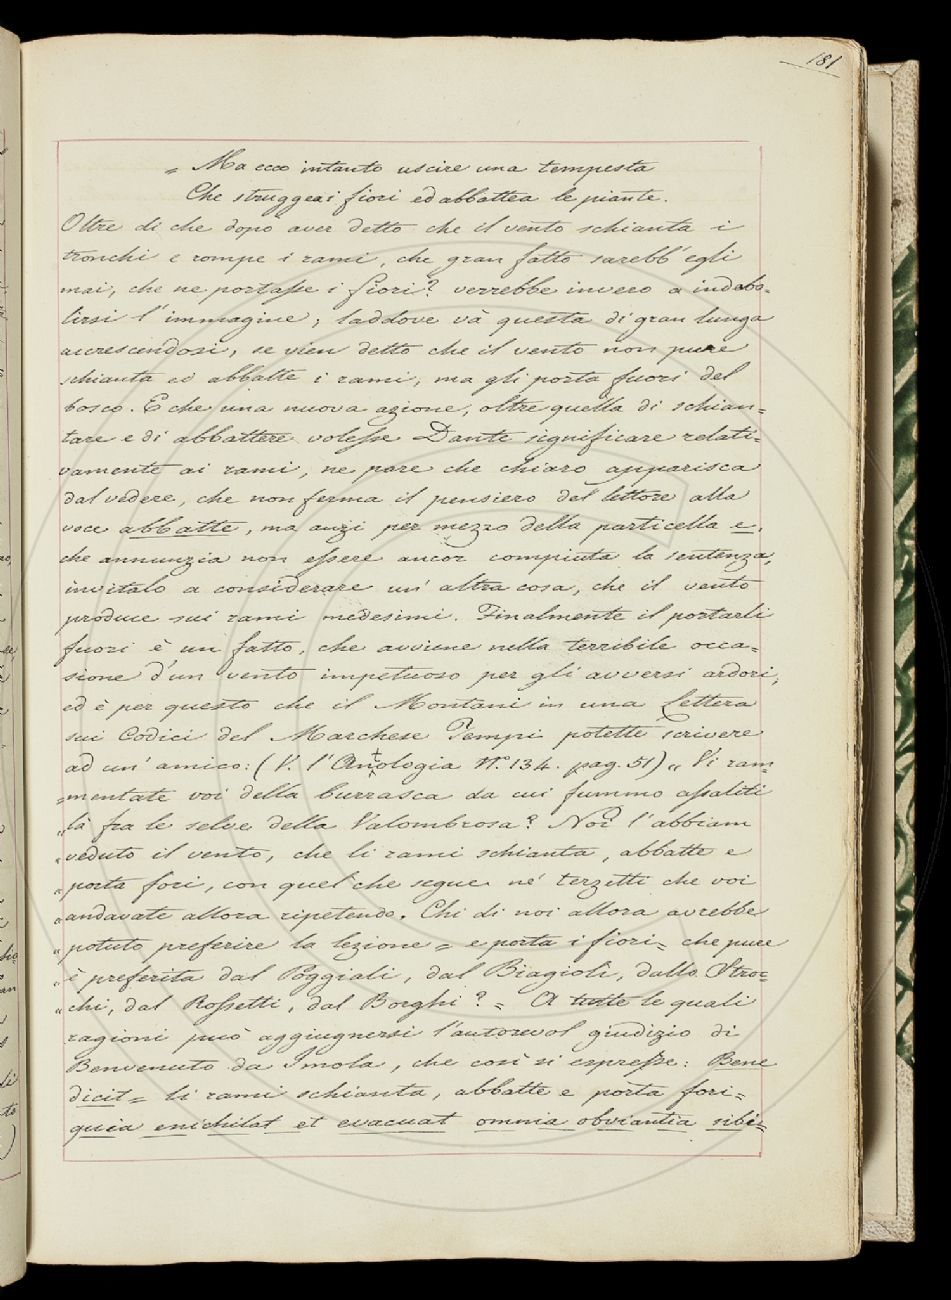 181
= Ma ecco intanto uscire una tempesta
Che struggea i fiori ed abbattea le piante.
Oltre di che dopo aver detto che il vento schianta i
tronchi e rompe i rami, che gran fatto sarebb' egli
mai, che ne portasse i fiori? verrebbe invero a indebo=
lirsi l'immagine; laddove và questa di gran lunga
accrescendosi, se vien detto che il vento non pure
schianta ed abbatte i rami, ma gli porta fuori del
bosco. E che una nuova azione, oltre quella di schian=
tare e di abbattere volesse Dante significare relati=
vamente ai rami, ne pare che chiaro apparisca
dal vedere, che non ferma il pensiero del lettore alla
voce abbatte, ma anzi per mezzo della particella e,
che annunzia non essere ancor compiuta la sentenza,
invitalo a considerare un' altra cosa, che il vento
produce sui rami medesimi. Finalmente il portarli
fuori è un fatto, che avviene nella terribile occa=
sione d'un vento impetuoso per gli avversi ardori,
ed è per questo che il Montani in una Lettera
sui Codici del Marchese Tempi potette scrivere
ad un' amico: (V. l'Antologia N.º 134. pag. 51) „ Vi ram=
=mentate voi della burrasca da cui fummo assaliti
„ là fra le selve della Valombrosa? Noi l'abbiam
„ veduto il vento, che li rami schianta, abbatte e
„ porta fori, con quel che segue ne' terzetti che voi
„ andavate allora ripetendo. Chi di noi allora avrebbe
„ potuto preferire la lezione = e porta i fiori = che pure
„ è preferita dal Poggiali, dal Biagioli, dallo Stroc=
„ chi, dal Rossetti, dal Borghi? = A tutte le quali
ragioni può aggiugnersi l'autorevol giudizio di
Benvenuto da Imola, che così si espresse: Bene
dicit = li rami schianta, abbatte e porta fori =
quia enichilat et evacuat omnia obviantia sibi =